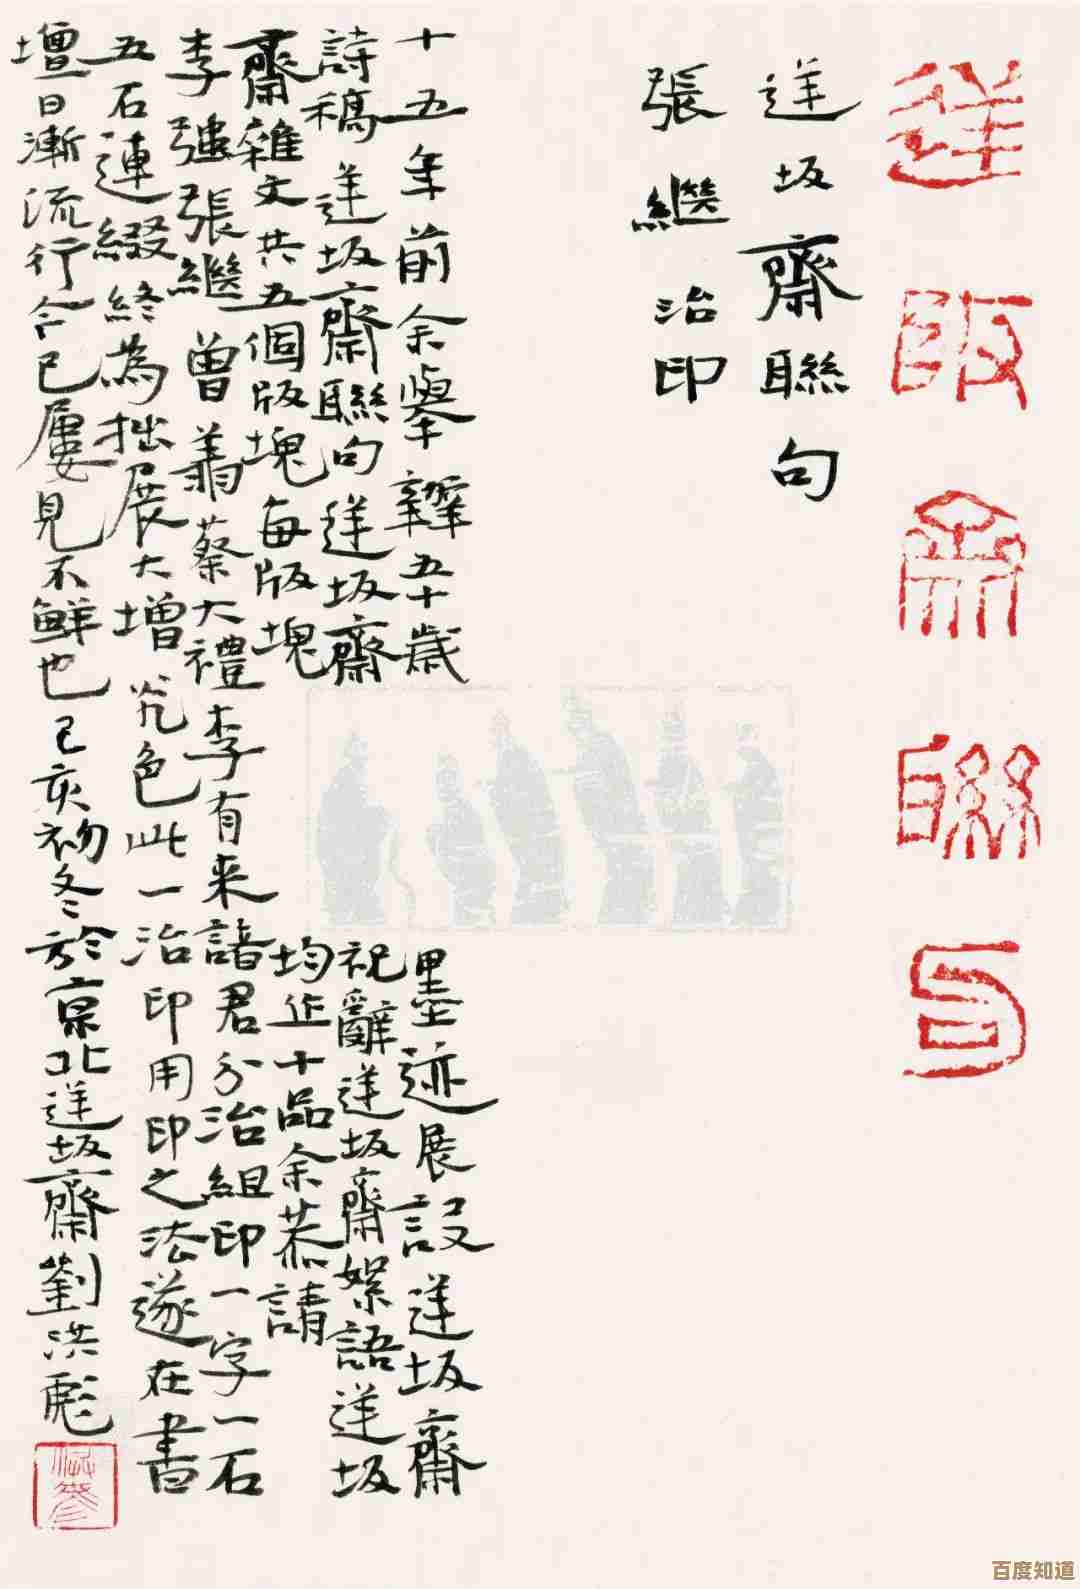 逆阪齋聯句
逆坂齋聯句
張繼治印
十五年前余舉辦五十歲墨迹展設逆坂齋
詩稿逆坂齋聯句逆坂齋祝辭逆坂齋絮語逆坂
齋雜文共五個版塊每版塊均止十品余恭請
李強張繼曾翔蔡大禮李有来諸君分治組印一字一石
五石連綴終為拙展大增光色此一治印用印之法遂在書
壇日漸流行今已屢見不鮮也己亥初冬於京北逆坂齋劉洪彪
百度知道